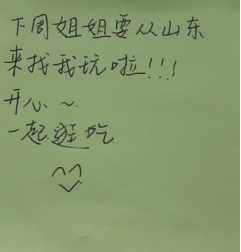 下周姐姐要从山东
来找我玩啦!!!
开心~
一起逛吃